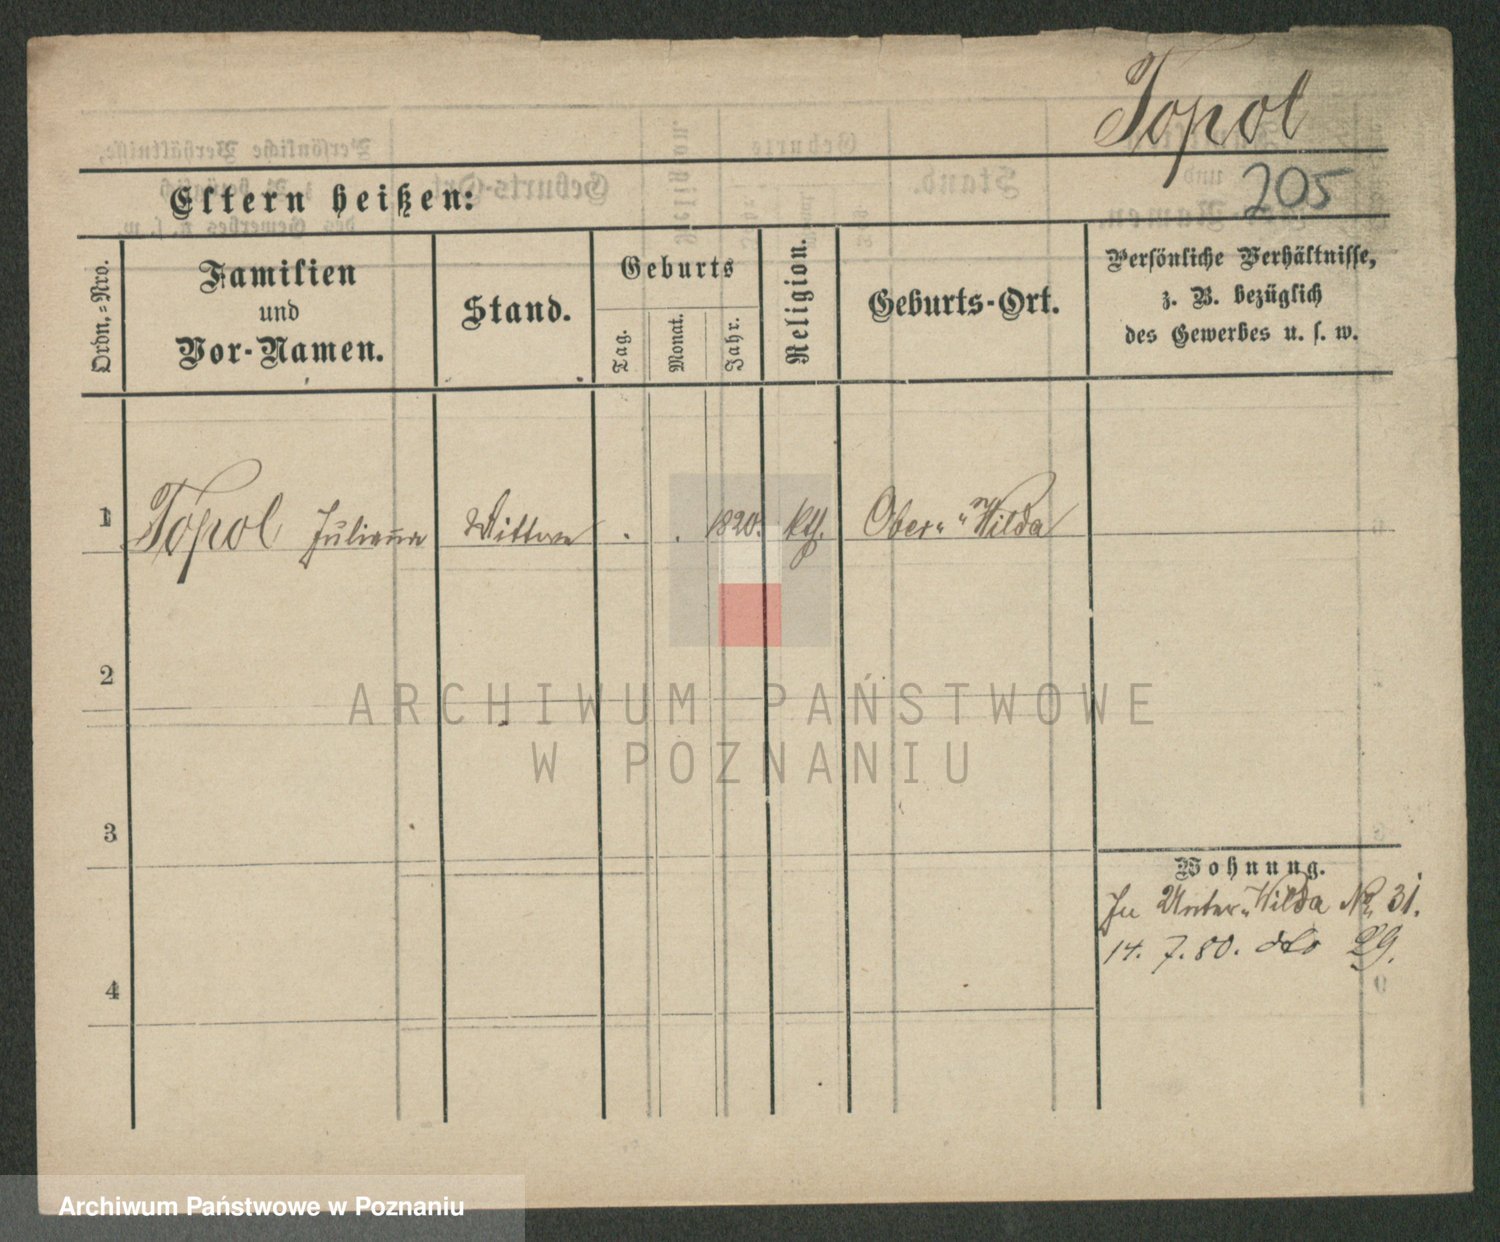 Topol
205
Eltern heißen:
Ordn.-Nro.
Familien
und
Vor-Namen.
Stand.
Geburts
Tag.
Monat.
Jahr.
Religion.
Geburts-Ort.
Persönliche Verhältnisse,
z. B. bezüglich
des Gewerbes u. s. w.
1 Topol Julianna Wittwe . . 1820. kth. Ober-Wilda
2
3
4
Wohnung.
In Unter-Wilda No 31.
14. 7. 80. dto 29.
ARCHIWUM PAŃSTWOWE
W POZNANIU
Archiwum Państwowe w Poznaniu